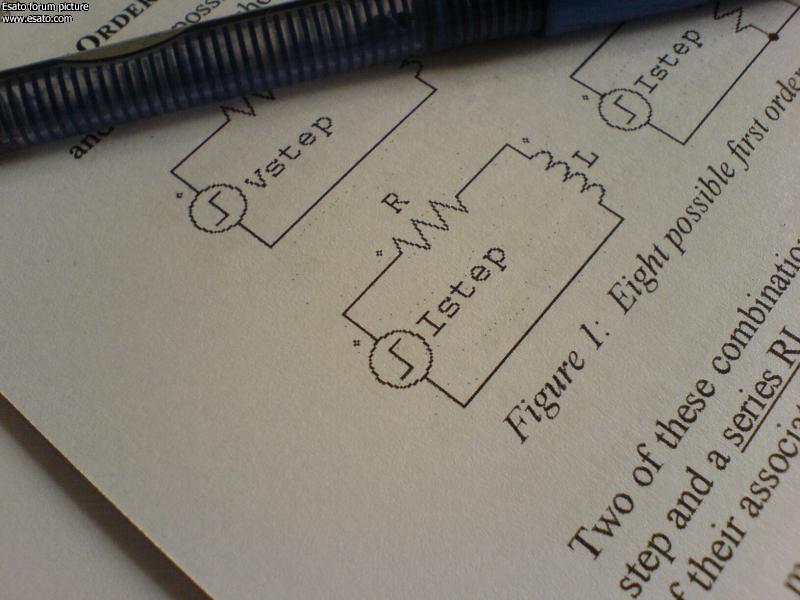 Esato forum picture
www.esato.com
ORDER
poss
and
Vstep
Istep
R
L
Istep
Figure 1: Eight possible first orde
Two of these combinatio
step and a series RL
f their associa